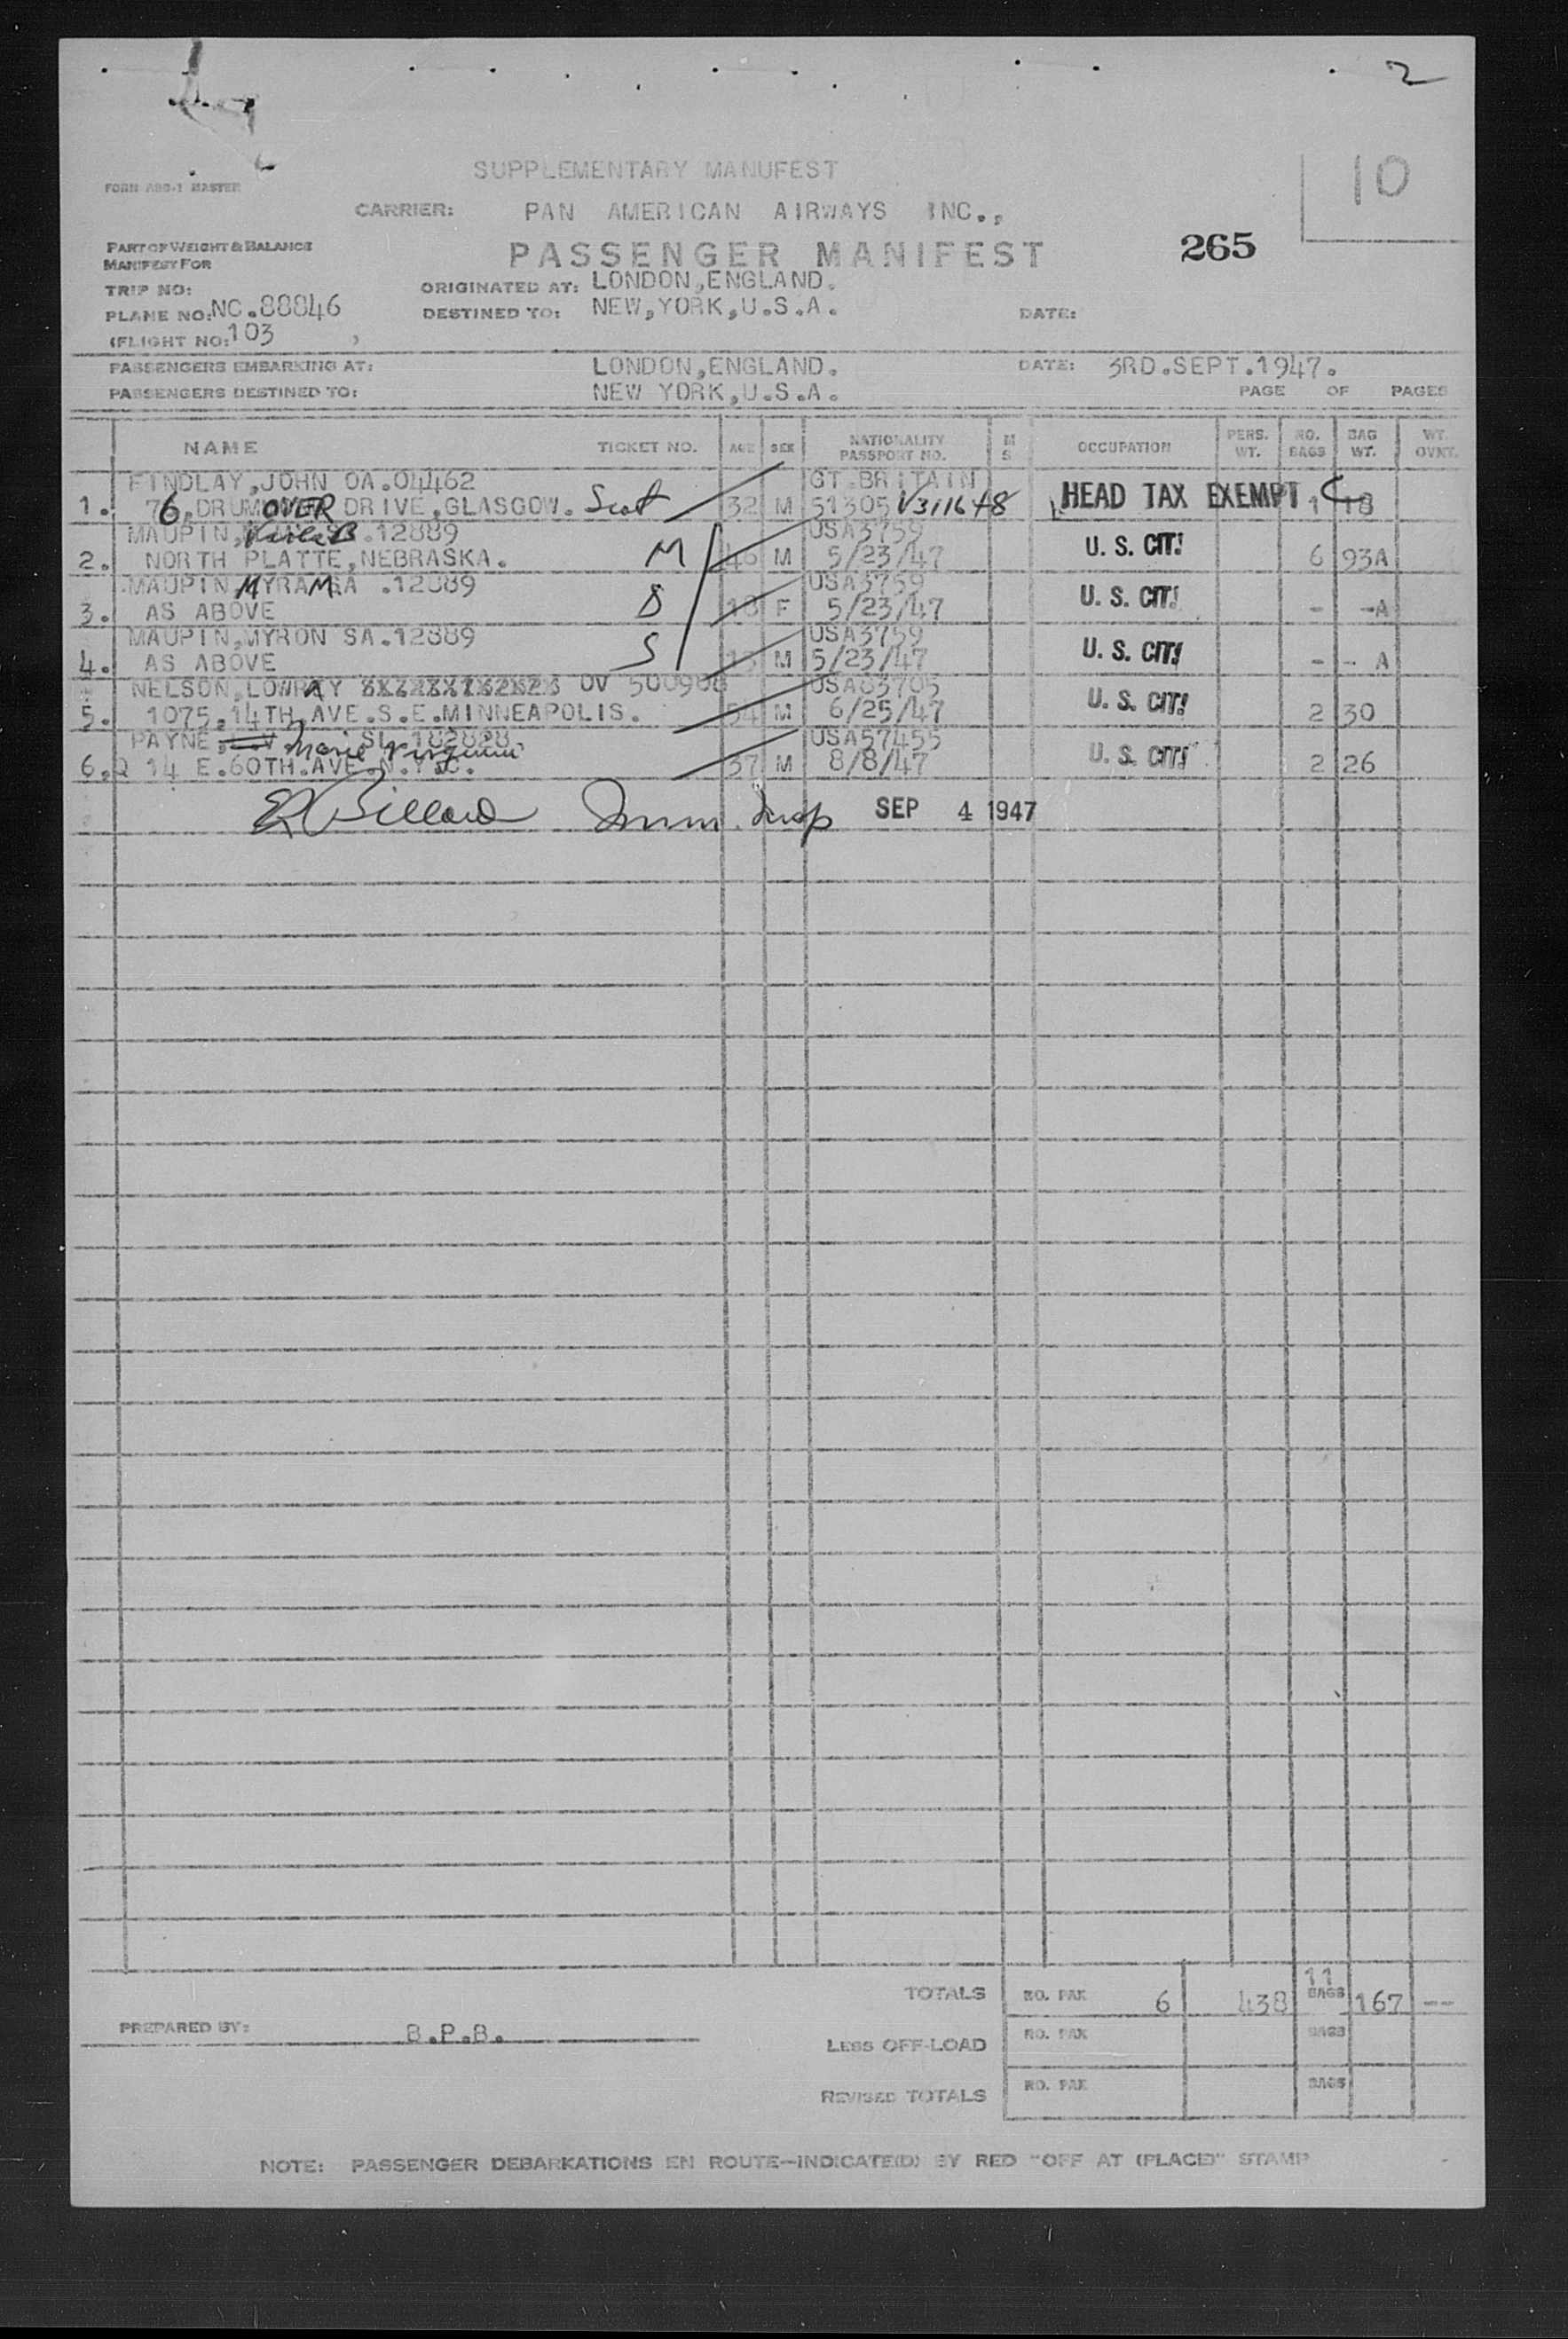 2
SUPPLEMENTARY MANUFEST
10
FORM ABO-1 MASTER
CARRIER: PAN AMERICAN AIRWAYS INC.,
PART OF WEIGHT & BALANCE
MANIFEST FOR
PASSENGER MANIFEST
265
TRIP NO:
ORIGINATED AT: LONDON,ENGLAND.
PLANE NO: NC.88846
DESTINED TO: NEW,YORK,U.S.A.
DATE:
(FLIGHT NO: 103 )
PASSENGERS EMBARKING AT: LONDON,ENGLAND. DATE: 3RD.SEPT.1947.
PASSENGERS DESTINED TO: NEW YORK,U.S.A. PAGE OF PAGES
NAME TICKET NO. AGE SEX NATIONALITY PASSPORT NO. M S OCCUPATION PERS. WT. NO. BAGS BAG WT. WT. OVNT.
FINDLAY,JOHN OA.04462 GT.BRITAIN
1. 76,DRUMOVER DRIVE,GLASGOW. Scot 32 M 51305 V311648 HEAD TAX EXEMPT 1 18
MAUPIN, B.12889 USA3759
2. NORTH PLATTE,NEBRASKA. M 46 M 5/23/47 U. S. CIT! 6 93A
MAUPIN MYRA M A .12889 USA3759
3. AS ABOVE D 18 F 5/23/47 U. S. CIT! - -A
MAUPIN,MYRON SA.12889 USA3759
4. AS ABOVE S 13 M 5/23/47 U. S. CIT! - - A
NELSON,LOWRAY OV 500908 USA83705
5. 1075,14TH,AVE.S.E.MINNEAPOLIS. 54 M 6/25/47 U. S. CIT! 2 30
PAYNE Marie Virginia SL 182828. USA57455
6. 14 E.60TH.AVE.N.Y.C. 37 M 8/8/47 U. S. CIT! 2 26
E R Billard Imm. Insp SEP 4 1947
TOTALS NO. PAX 6 438 11 BAGS 167 --
PREPARED BY: B.P.B.
LESS OFF-LOAD NO. PAX BAGS
REVISED TOTALS NO. PAX BAGS
NOTE: PASSENGER DEBARKATIONS EN ROUTE—INDICATE(D) BY RED "OFF AT (PLACE)" STAMP